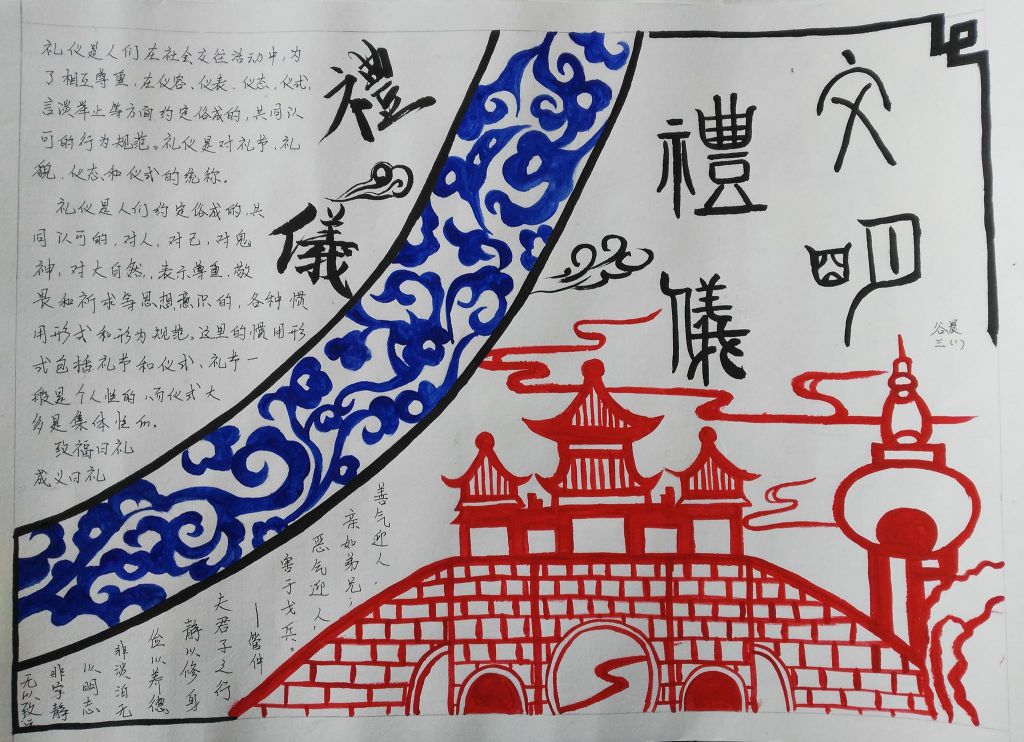 礼仪是人们在社会交往活动中,为
了相互尊重,在仪容、仪表、仪态、仪式,
言谈举止等方面约定俗成的,共同认
可的行为规范。礼仪是对礼节、礼
貌、仪态和仪式的统称。
礼仪是人们约定俗成的,共
同认可的,对人,对己,对鬼
神,对大自然,表示尊重、敬
畏和祈求等思想意识的,各种惯
用形式和形为规范。这里的惯用形
式包括礼节和仪式、礼节一
般是个人性的,而仪式大
多是集体性的。
致福曰礼
成义曰礼
禮
儀
文
明
禮
儀
谷晨
三(1)
善气迎人,
亲如弟兄;
恶气迎人,
害于戈兵。
—管仲
夫君子之行
静以修身
俭以养德
非淡泊无
以明志
非宁静
无以致远